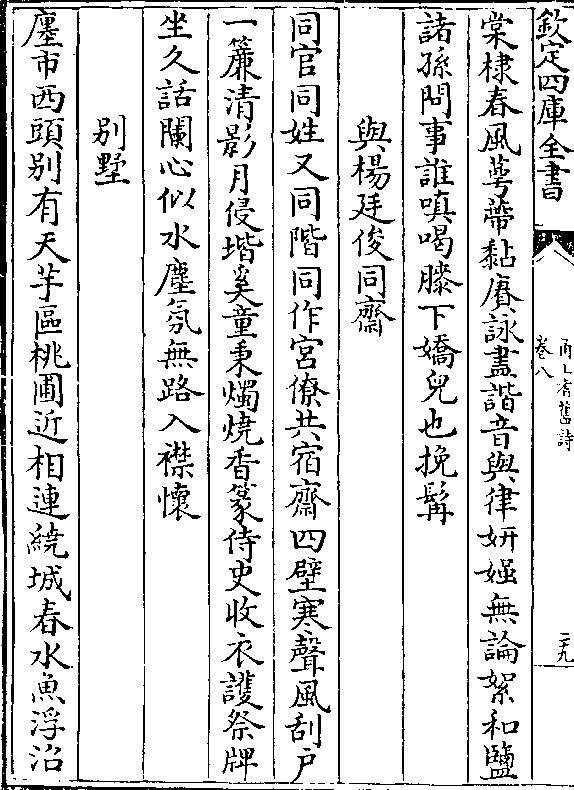 欽定四庫全書
卷八
棠棣春風萼蔕黏賡詠盡諧音與律妍媸無論絮和鹽
諸孫問事誰嗔喝膝下嬌兒也挽髯
與楊廷俊同齋
同官同姓又同階同作宮僚共宿齋四壁寒聲風刮戶
一簾清影月侵堦奚童秉燭燒香篆侍史收衣護祭牌
坐久話闌心似水塵氛無路入襟懷
別墅
廛市西頭别有天芋區桃圃近相連繞城春水魚浮沼